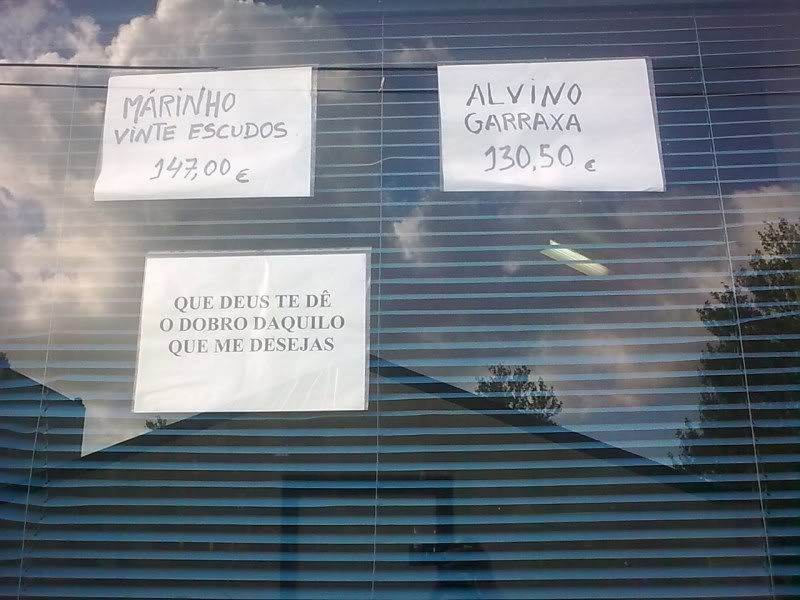 MÁRINHO
VINTE ESCUDOS
147,00 €
ALVINO
GARRAXA
130,50 €
QUE DEUS TE DÊ
O DOBRO DAQUILO
QUE ME DESEJAS